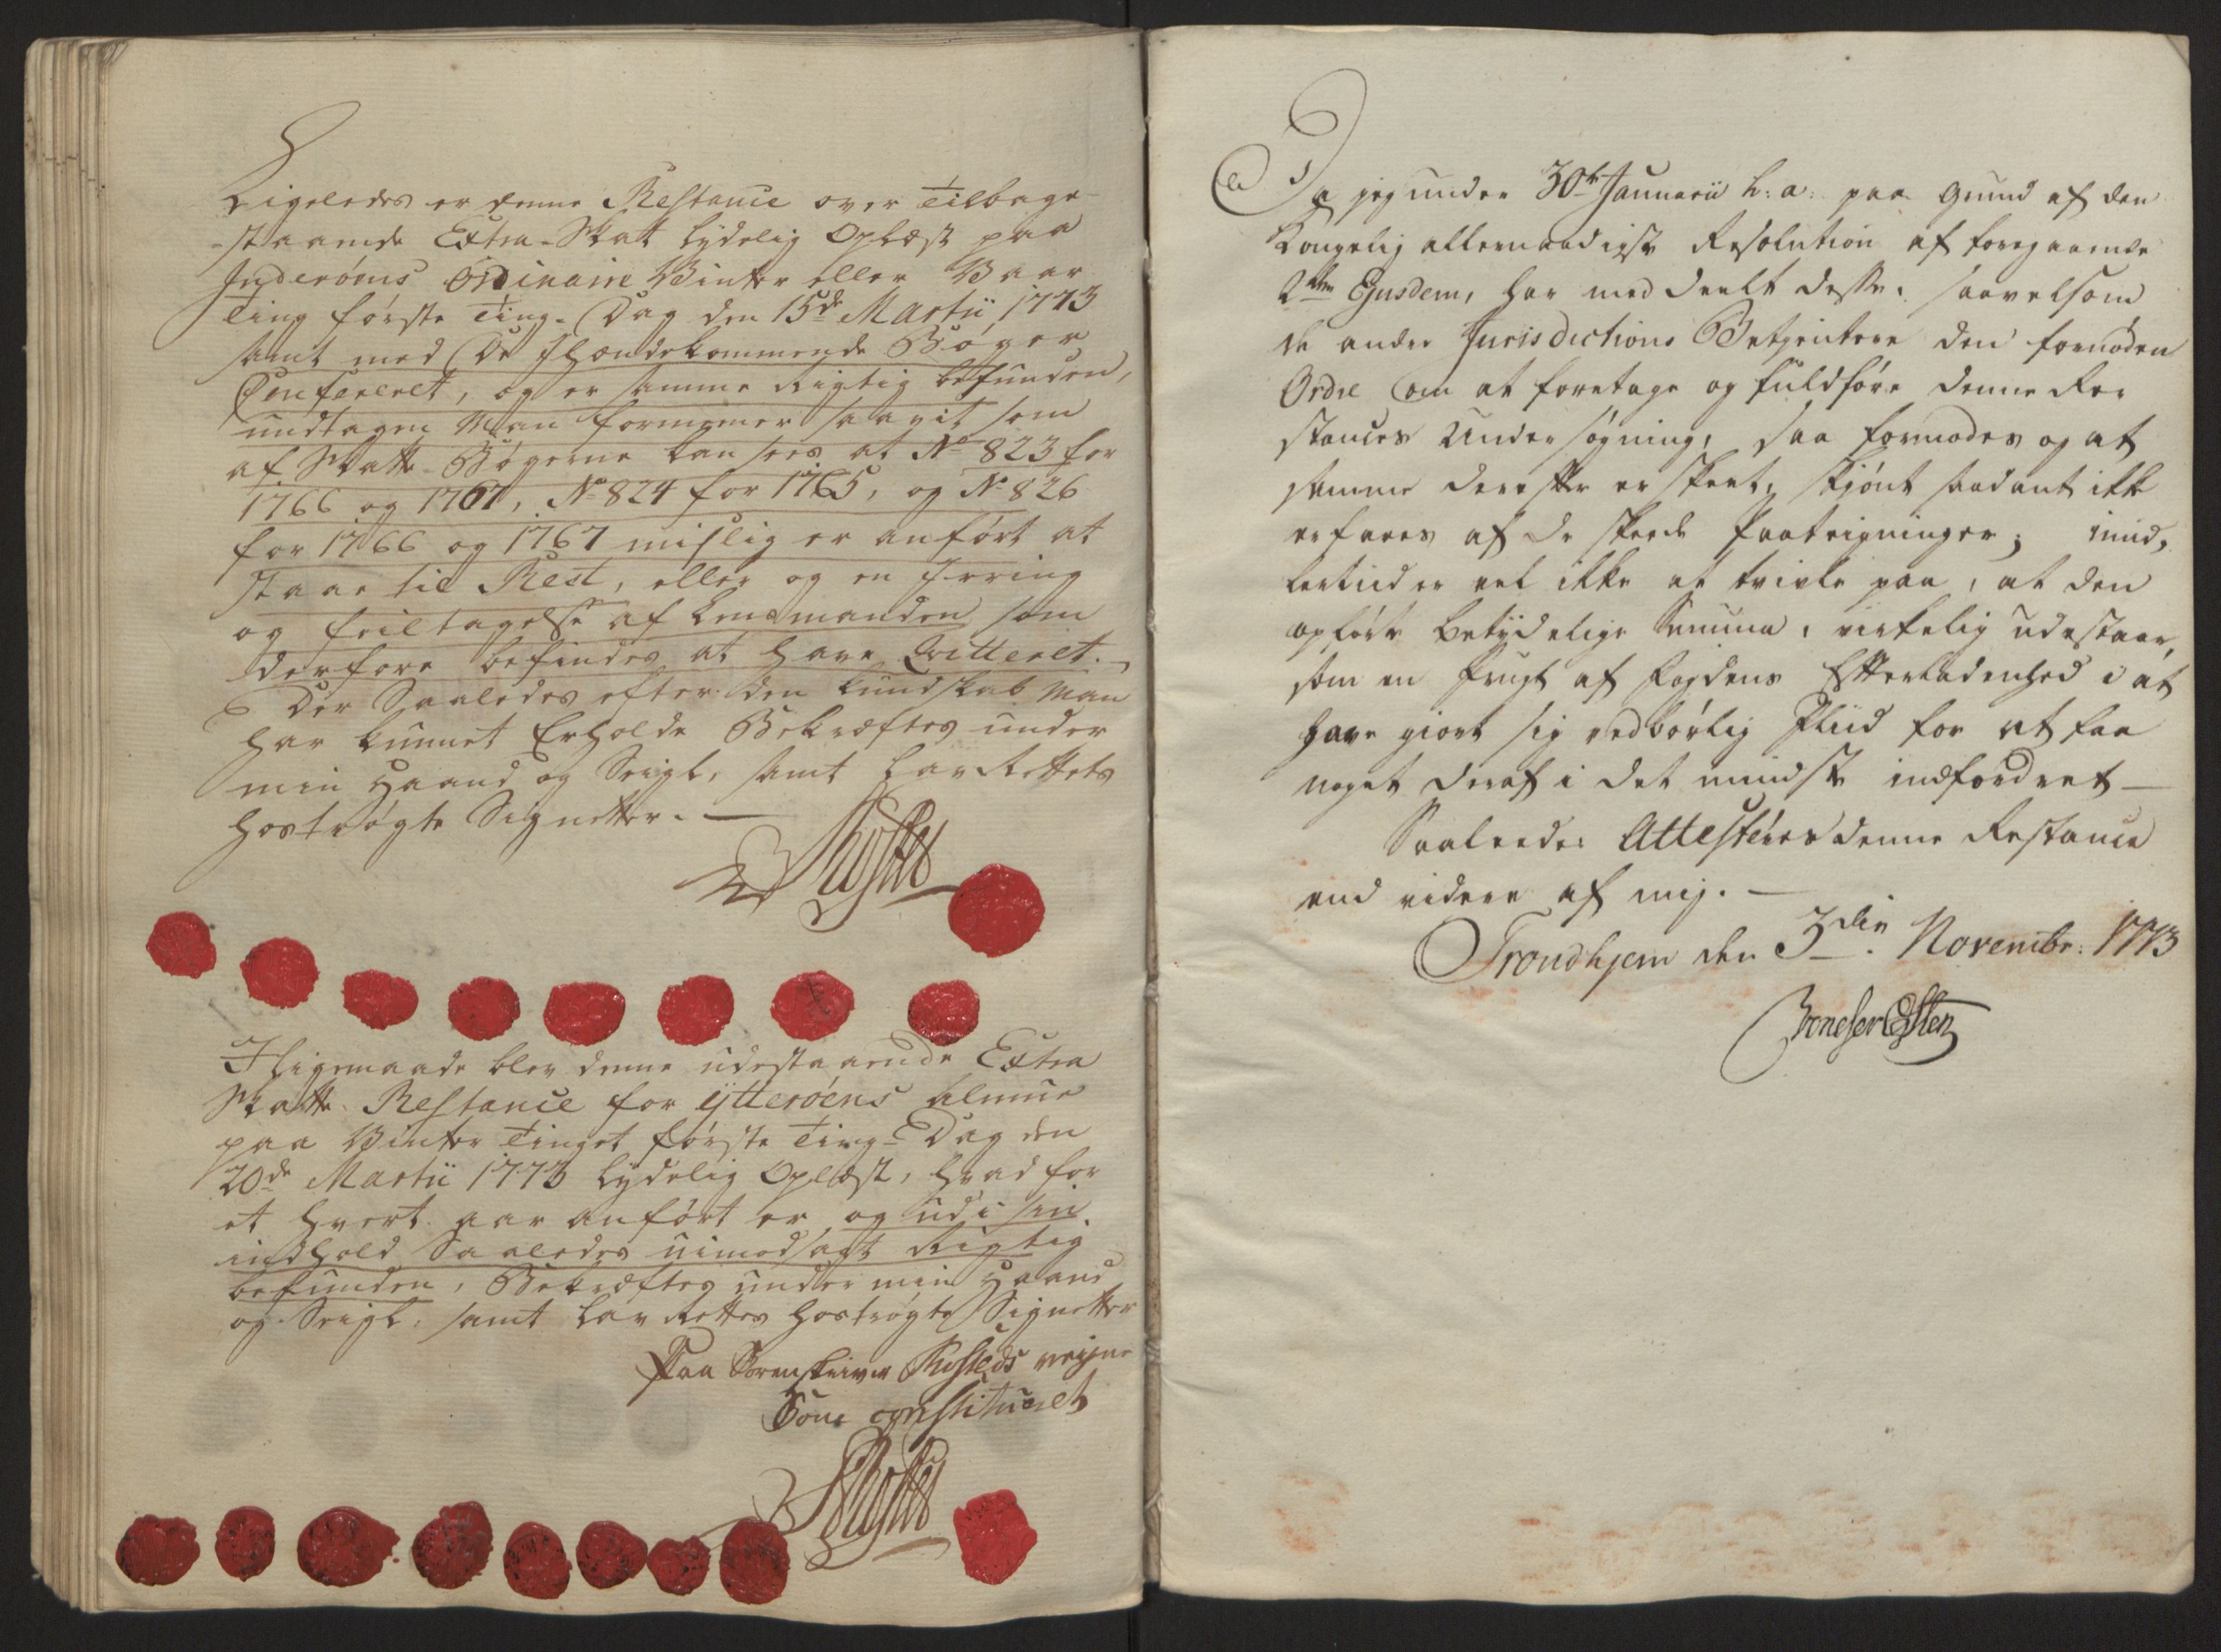 Ligeledes er denne Restance over Tilbage-
-staaende Extra-Skatt lydelig Oplæst paa
Inderøens Ordinaire Vinter eller Vaar
Ting første Ting-Dag den 15de Martii 1773
samt med De Ihændekommende Bøger
Confereret, og er samme Rigtig befunden,
undtagen Man formener saavit som
af Skatte-Bøgerne kan sees at No 823 for
1766 og 1767, No 824 for 1765, og No 826
for 1766 og 1767 mislig er anført at
staae til Rest, eller og en Irring
og feiltagelse af Lensmanden som
derfore befindes at have Qvitteret.
Der Saaledes efter den kundskab Man
har kunnet Erholde Bekræftes under
min Haand og Seigl, samt LavRettets
hostrøgte Signetter.
I ligemaade blev denne udestaaende Extra
Skatte Restance for Ytterøens Almue
paa Vinter Tinget første Ting-Dag den
20de Martii 1773 lydelig Oplæst, hvad for
et hvert aar anført er og udi sin
indhold Saaledes uimodsagt Rigtig
befunden, Bekræftes under min Haand
og Seigl, samt LavRettes hostrøgte Signetter
Paa Sorenskriver Rusteds veigne
Som constitueret
Da jeg under 30te Januarii h: a: paa Grund af den
Kongelig allernaadigste Resolution af foregaaende
2den Ejusdem, har meddeelt desse, saavelsom
de andre Jurisdictions Betjentere den fornøden
Ordre om at foretage og fuldføre denne Re
stances Undersøgning, saa formodes og at
samme derefter er skeet, skjønt saadant ikke
erfares af de skeede Paategninger; imid,
lertiid er vel ikke at tvivle paa, at den
opførte betydelige Summa, virkelig udestaar,
som en frugt af Fogdens Efterladenhed i at
have giort sig vedbørlig Fliid for at faa
noget deraf i det mindste indfordret
Saaleedes Attesteres denne Restance
end videre af mig.
Trondhjem den 3die Novembr: 1773